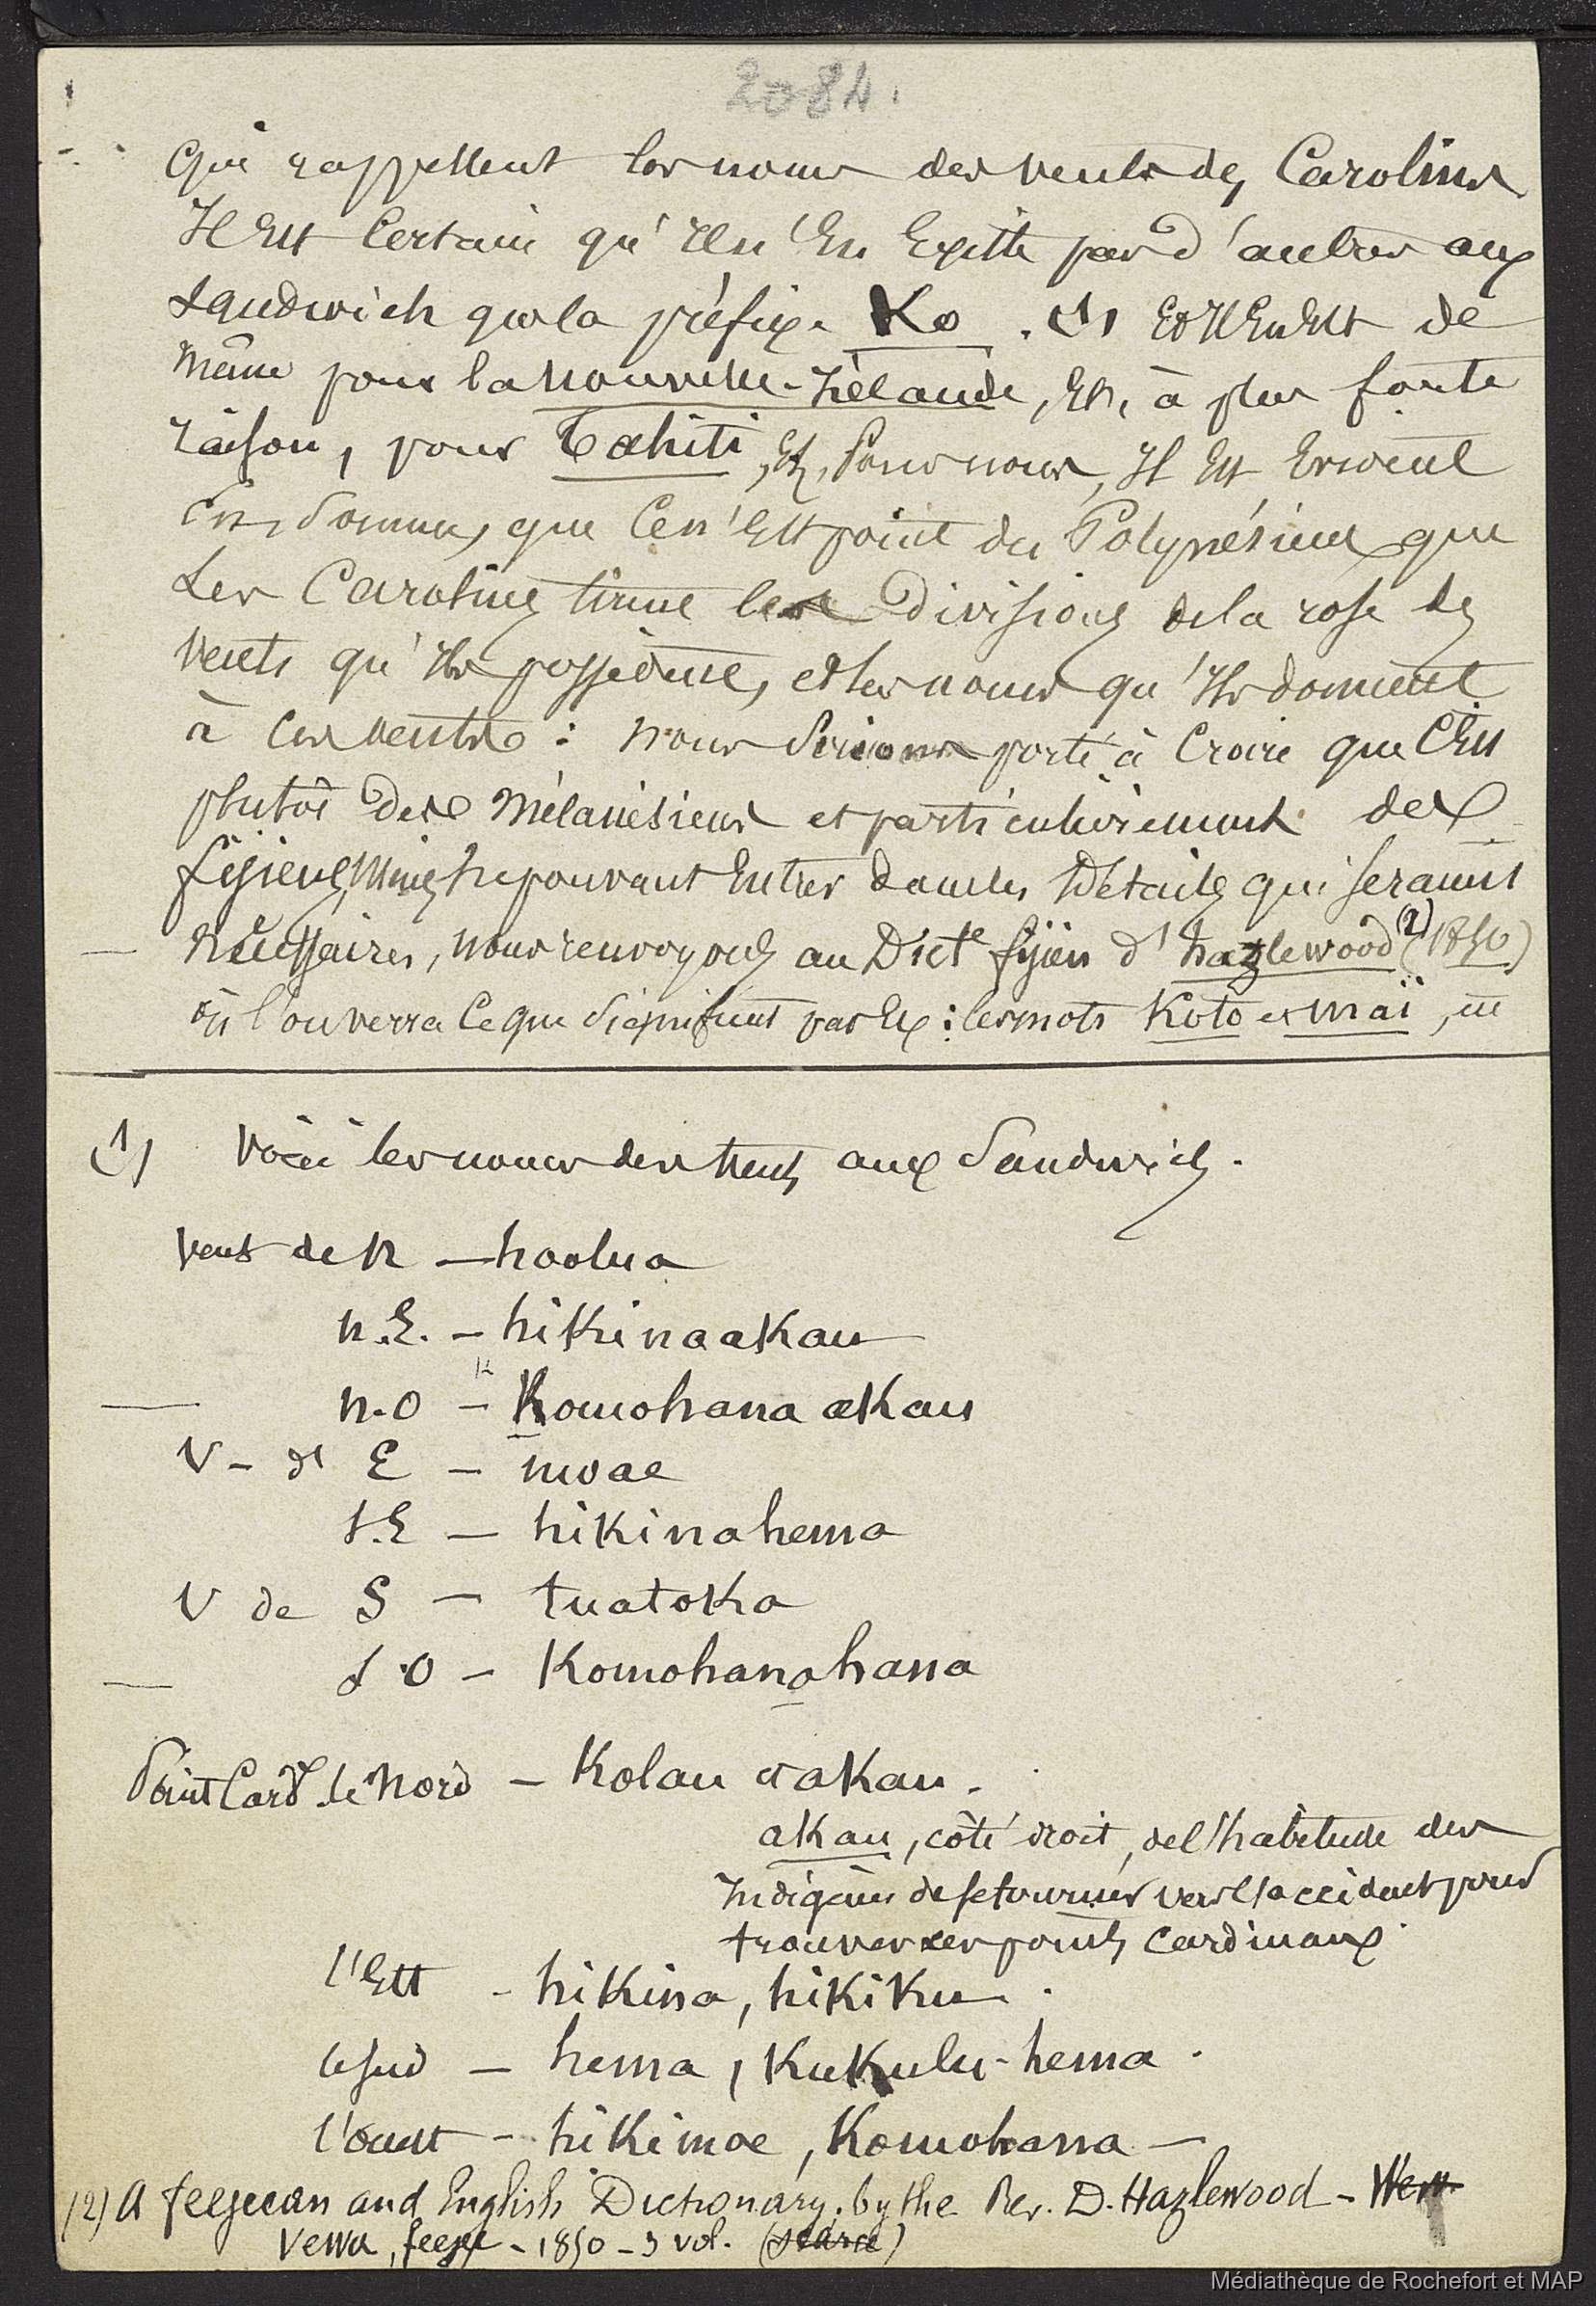 2084.
qui rappellent les noms des vents des Carolins
Il Est Certain qu'il n'En Existe pas d'autres aux
Sandwich que la préfixe Ko . (1) Et Il En Est de
même pour la Nouvelle-Zélande, Et, à plus forte
raison, pour Tahiti, Et, Pour nous, Il Est Evident
En Somme, que Ce n'Est point des Polynésiens que
Les Carolins tirent les Divisions de la rose des
vents qu'Ils possèdent, et les noms qu'Ils donnent
à Ces vents : nous Serions porté à Croire que C'Est
plutôt des Mélanésiens et particulièrement des
fijiens, Mais ne pouvant Entrer dans les Détails qui seraient
nécessaires, nous renvoyons au Dict.e fijien d'hazlewood (2) (1850)
où l'on verra Ce que Signifient par Ex : les mots Koto et maï, en
(1) Voici les noms des Vents aux Sandwich.
Vent de N — hoolua
n.E. — hikinaakau
n.O — Komohana akau
V - d' E — moae
S.E — hikinahema
V de S — tuatoka
S.O — Komohanahana
Point Card. le Nord — Kolau et akau.
akau, côté droit, de l'habitude des
Indigènes de se tourner vers l'occident pour
trouver les points Cardinaux.
l'Est - hikina, hikiku.
le sud — hema, Kukulu-hema.
l'ouest - hikimoe, Komohana —
(2) A feejeean and English Dictionary, by the Rev. D. Hazlewood -
Vewa, feejee - 1850 - 3 vol. (scarce)
Médiathèque de Rochefort et MAP